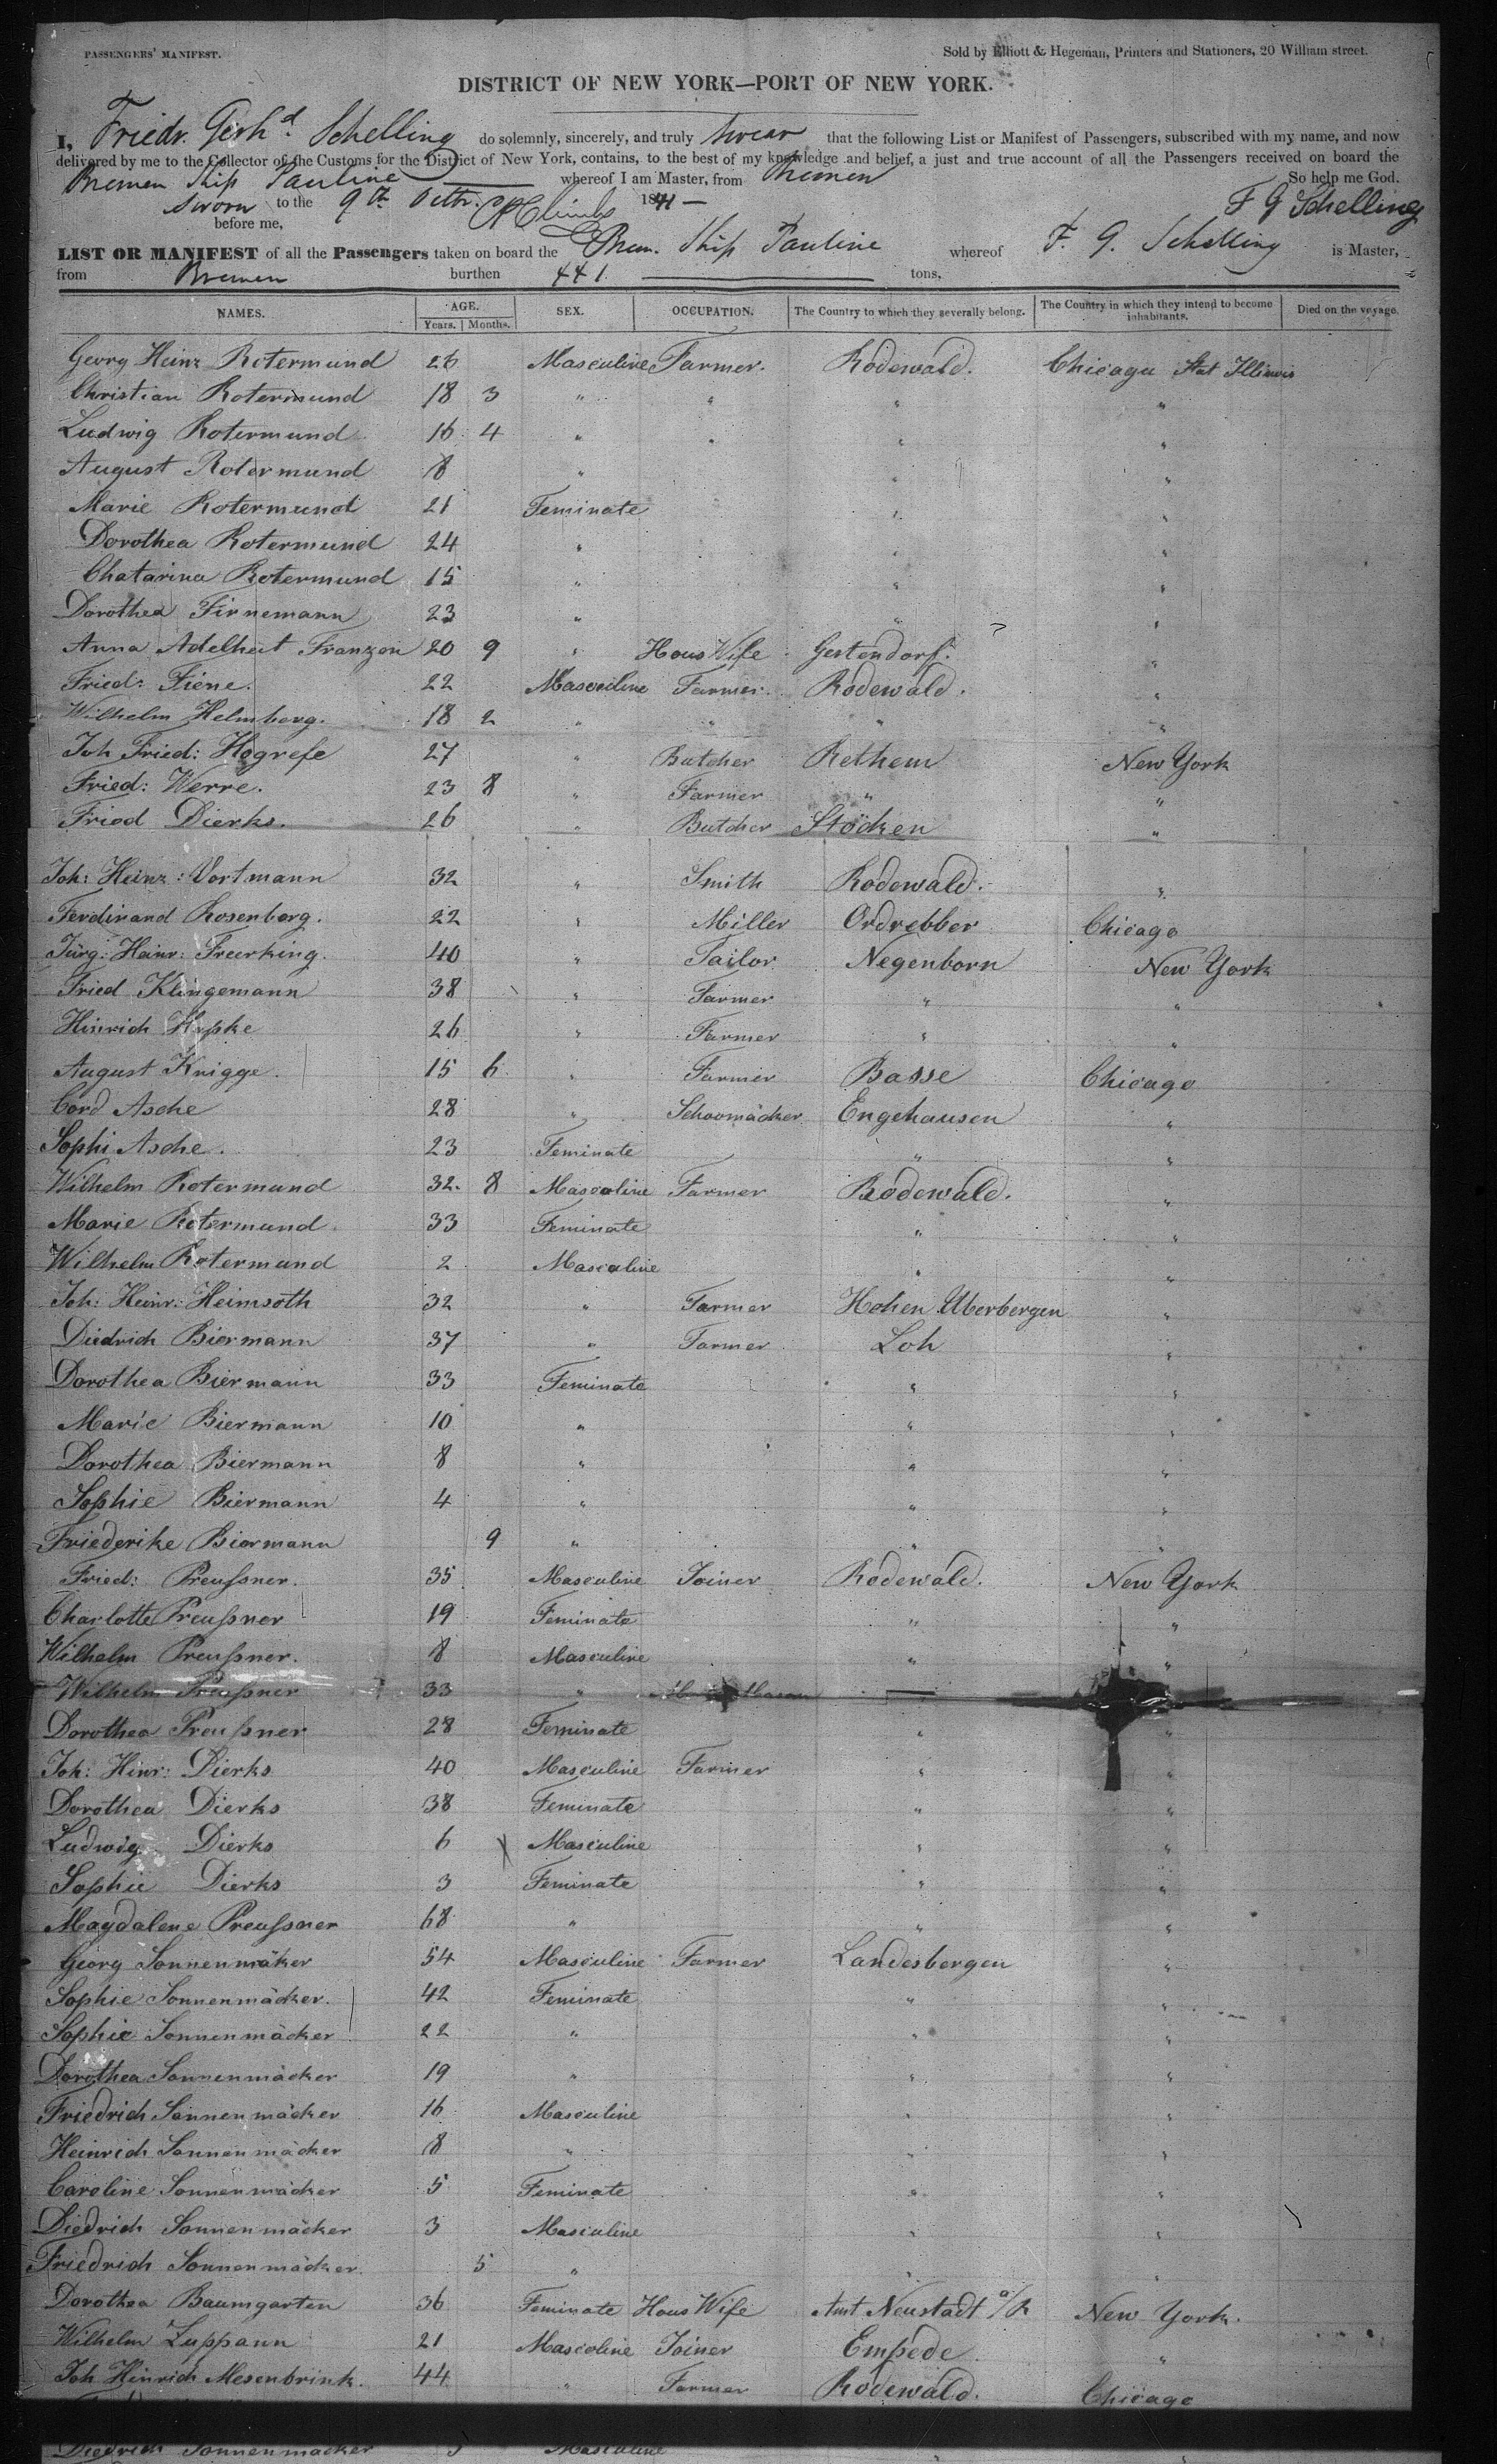 PASSENGERS' MANIFEST.
Sold by Elliott & Hegeman, Printers and Stationers, 20 William street.
DISTRICT OF NEW YORK—PORT OF NEW YORK.
I, Friedr. Gerhd. Schelling do solemnly, sincerely, and truly swear that the following List or Manifest of Passengers, subscribed with my name, and now
delivered by me to the Collector of the Customs for the District of New York, contains, to the best of my knowledge and belief, a just and true account of all the Passengers received on board the
Bremen Ship Pauline whereof I am Master, from Bremen So help me God.
Sworn to the 9th Octbr. 1841 — F G Schelling
before me,
LIST OR MANIFEST of all the Passengers taken on board the Brem. Ship Pauline whereof F. G. Schelling is Master,
from Bremen burthen 441 tons,
NAMES. AGE. SEX. OCCUPATION. The Country to which they severally belong. The Country in which they intend to become inhabitants. Died on the voyage.
Years. Months.
Georg Heinr Rotermund 26 Masculine Farmer. Rodewald. Chicagu Stat Illinois
Christian Rotermund 18 3 " " " "
Ludwig Rotermund 16 4 " " " "
August Rotermund 8 " " "
Marie Rotermund 21 Feminate " "
Dorothea Rotermund 24 " " "
Chatarina Rotermund 15 " " "
Dorothea Firnemann 23 " " "
Anna Adelheit Franzen 20 9 " Hous Wife Gestendorf. "
Fried: Fiene. 22 Masculine Farmer. Rodewald. "
Wilhelm Helmberg. 18 2 " " " "
Joh Fried: Hogrefe 27 " Butcher Rethem New York
Fried: Werre. 23 8 " Farmer " "
Fried Dierks. 26 " Butcher Stöcken "
Joh: Heinr: Vortmann 32 " Smith Rodewald. "
Ferdinand Rosenberg. 22 " Miller Ordrebber Chicago
Jürg: Heinr: Freerking. 40 " Tailor Negenborn New York
Fried Klingemann 38 " Farmer " "
Hinrich Hapke 26 " Farmer " "
August Knigge. 15 6 " Farmer Basse Chicago
Cord Asche 28 " Schoomäcker Engehausen "
Sophi Asche. 23 Feminate " "
Wilhelm Rotermund 32. 8 Masculine Farmer Rodewald. "
Marie Rotermund. 33 Feminate " "
Wilhelm Rotermund 2 Masculine " "
Joh: Heinr: Heimsoth 32 " Farmer Hohen Uberbergen "
Diedrich Biermann 37 " Farmer Loh "
Dorothea Biermann 33 Feminate " "
Marie Biermann 10 " " "
Dorothea Biermann 8 " " "
Sophie Biermann 4 " " "
Friederike Biermann 9 " " "
Fried: Preußner. 35 Masculine Joiner Rodewald. New York
Charlotte Preußner 19 Feminate " "
Wilhelm Preußner. 8 Masculine " "
Wilhelm Preußner 33 " Mason
Dorothea Preußner 28 Feminate " "
Joh: Hinr: Dierks 40 Masculine Farmer " "
Dorothea Dierks 38 Feminate " "
Ludwig Dierks 6 Masculine " "
Sophie Dierks 3 Feminate " "
Magdalene Preußner 68 " " "
Georg Sonnenmäker 54 Masculine Farmer Landesbergen "
Sophie Sonnenmäcker. 42 Feminate " "
Sophie Sonnenmäcker 22 " " "
Dorothea Sonnenmäcker 19 " " "
Friedrich Sonnenmäcker 16 Masculine " "
Heinrich Sonnenmäcker 8 " " "
Caroline Sonnenmäcker 5 Feminate " "
Diedrich Sonnenmäcker 3 Masculine " "
Friedrich Sonnenmäcker. 5 " " "
Dorothea Baumgarten 36 Feminate Hous Wife Amt Neustadt a/R New York.
Wilhelm Luppann 21 Masculine Joiner Empede "
Joh Hinrich Mesenbrink. 44 " Farmer Rodewald. Chicago
Diedrich Sonnenmäcker 3 Masculine